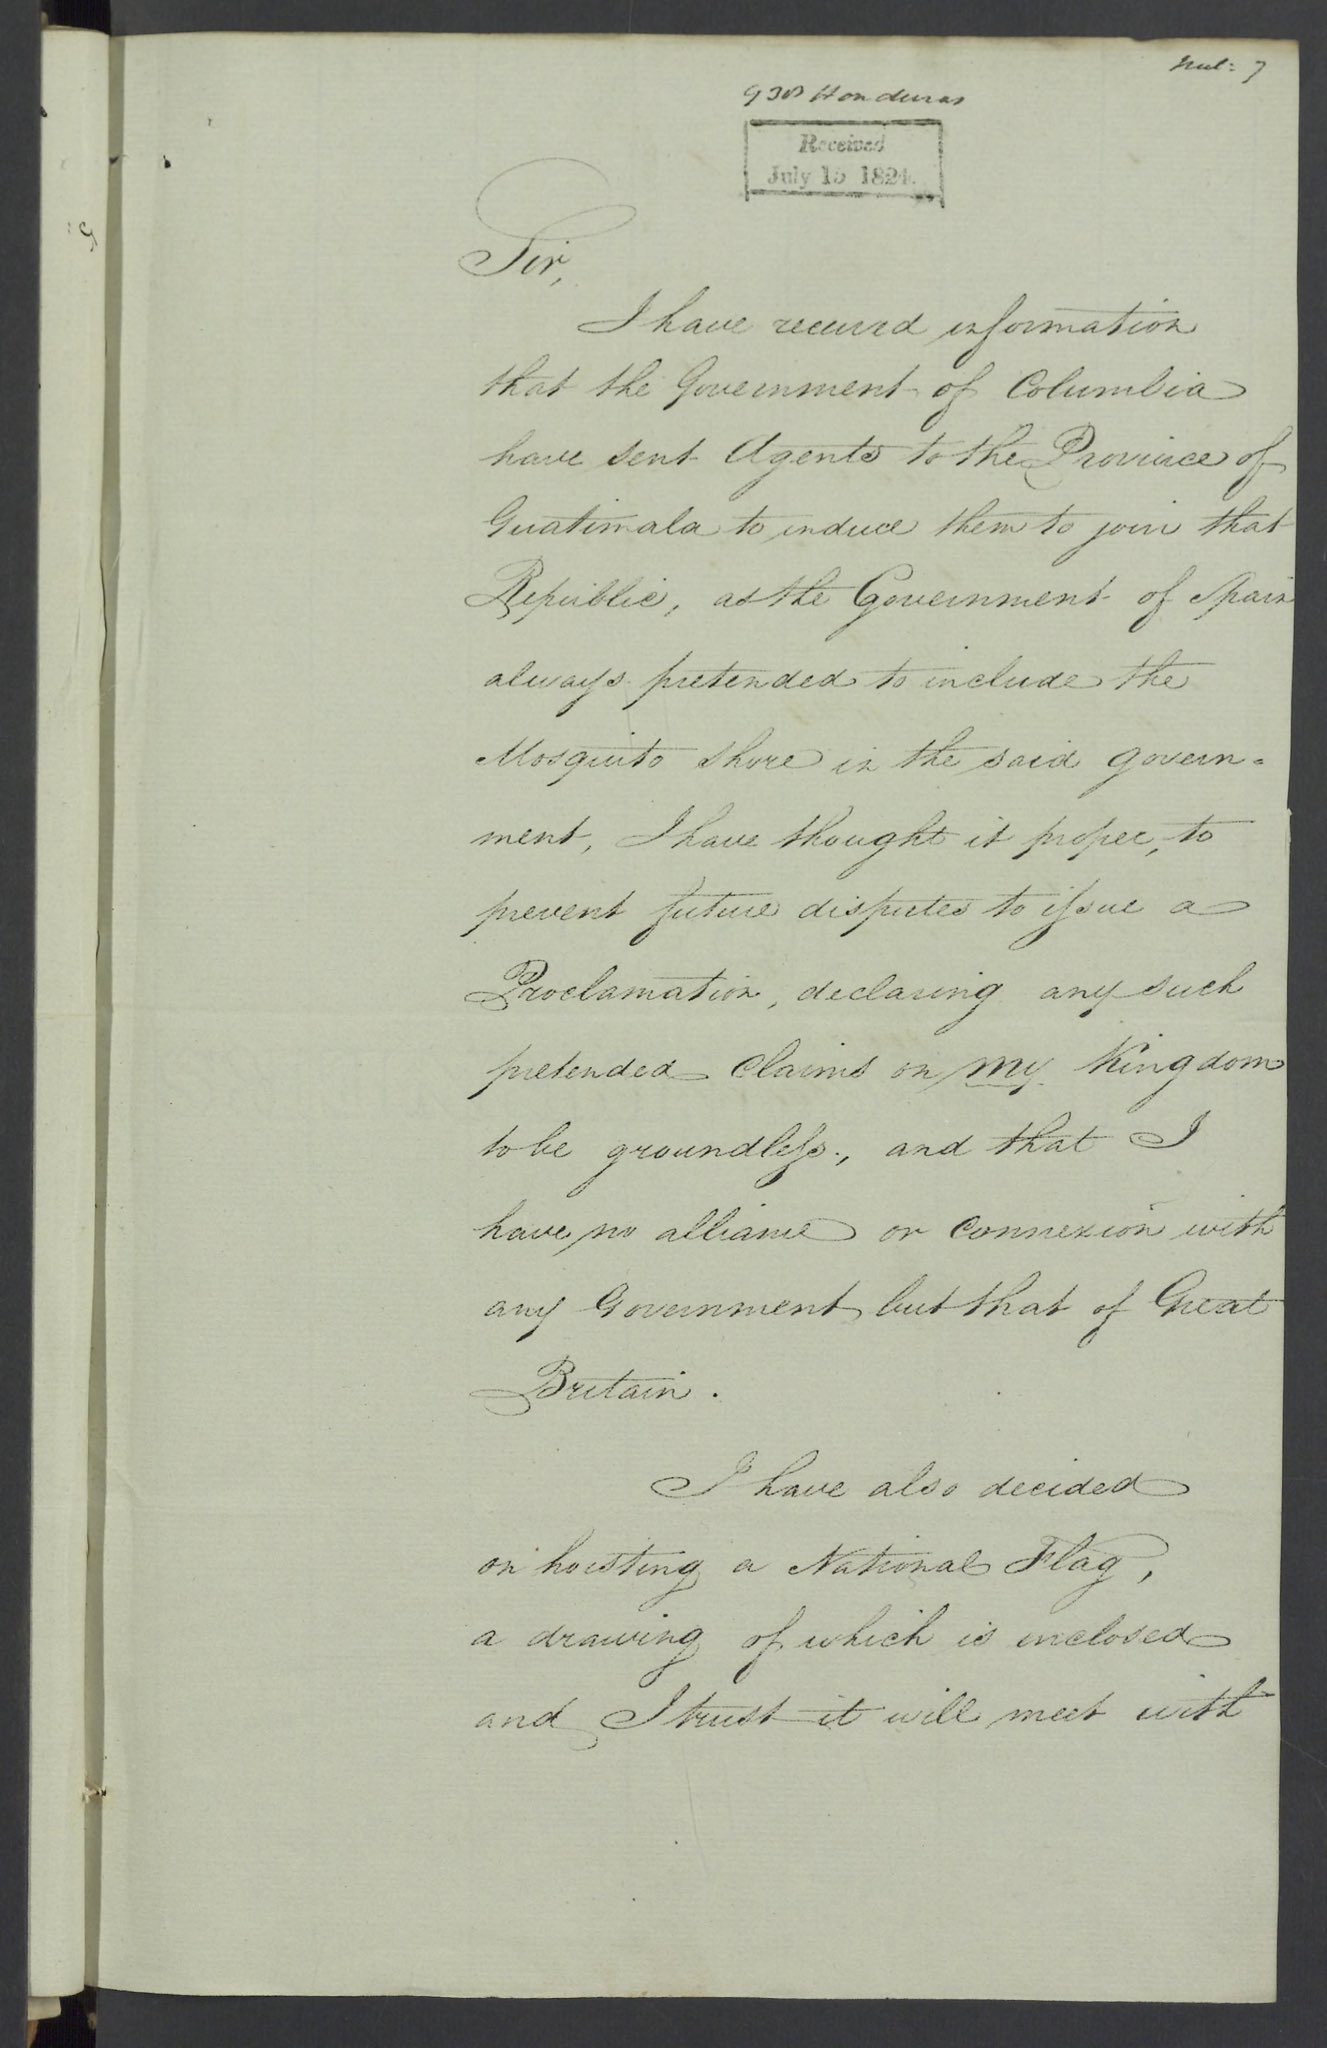 Incl: 7
930 Honduras
Received
July 15 1824
Sir,
I have received information
that the Government of Columbia
have sent Agents to the Province of
Guatimala to induce them to join that
Republic, as the Government of Spain
always pretended to include the
Mosquito Shore in the said govern=
ment, I have thought it proper, to
prevent future disputes to issue a
Proclamation, declaring any such
pretended claims on my Kingdom
to be groundless, and that I
have no alliance or connexion with
any Government but that of Great
Britain.
I have also decided
on hoisting a National Flag,
a drawing of which is inclosed
and I trust it will meet with